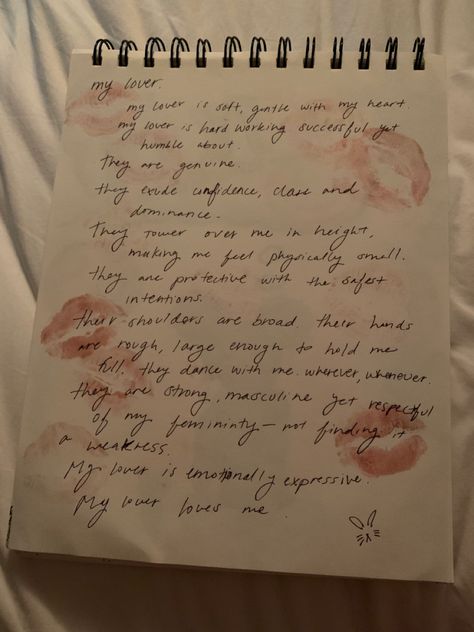 my lover.
my lover is soft, gentle with my heart.
my lover is hard working successful yet
humble about.
They are genuine.
they exude confidence, class and
dominance.
They tower over me in height,
making me feel physically small.
they are protective with the safest
intentions.
their shoulders are broad. their hands
are rough, large enough to hold me
full. they dance with me. wherever, whenever.
they are strong, masculine yet respectful
of my femininty - not finding it
a weakness.
My lover is emotionally expressive.
My lover loves me.